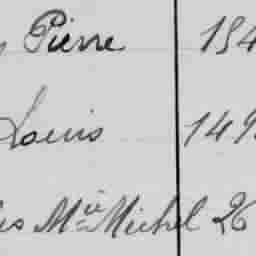 Pierre 154
Louis 149
Mie Michel 26